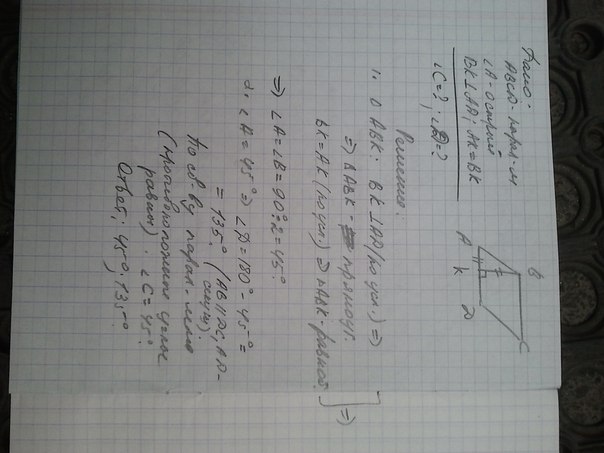 Дано:
ABCD - парал-м
∠A - острый
BK⊥AD; AK=BK
∠C=?; ∠D=?
B
C
A
K
D
Решение:
1. Δ ABK: BK⊥AD (по усл.) ⇒
⇒ ΔABK - прямоуг.
BK=AK (по усл.) ⇒ ΔABK - равноб.
⇒
⇒ ∠A=∠B=90°:2=45°
2. ∠A=45° ⇒ ∠D=180°-45°=
=135° (AB∥DC, AD-
секущ)
По св-ву парал-мма
(противоположные углы
равны): ∠C=45°
Ответ: 45°, 135°.